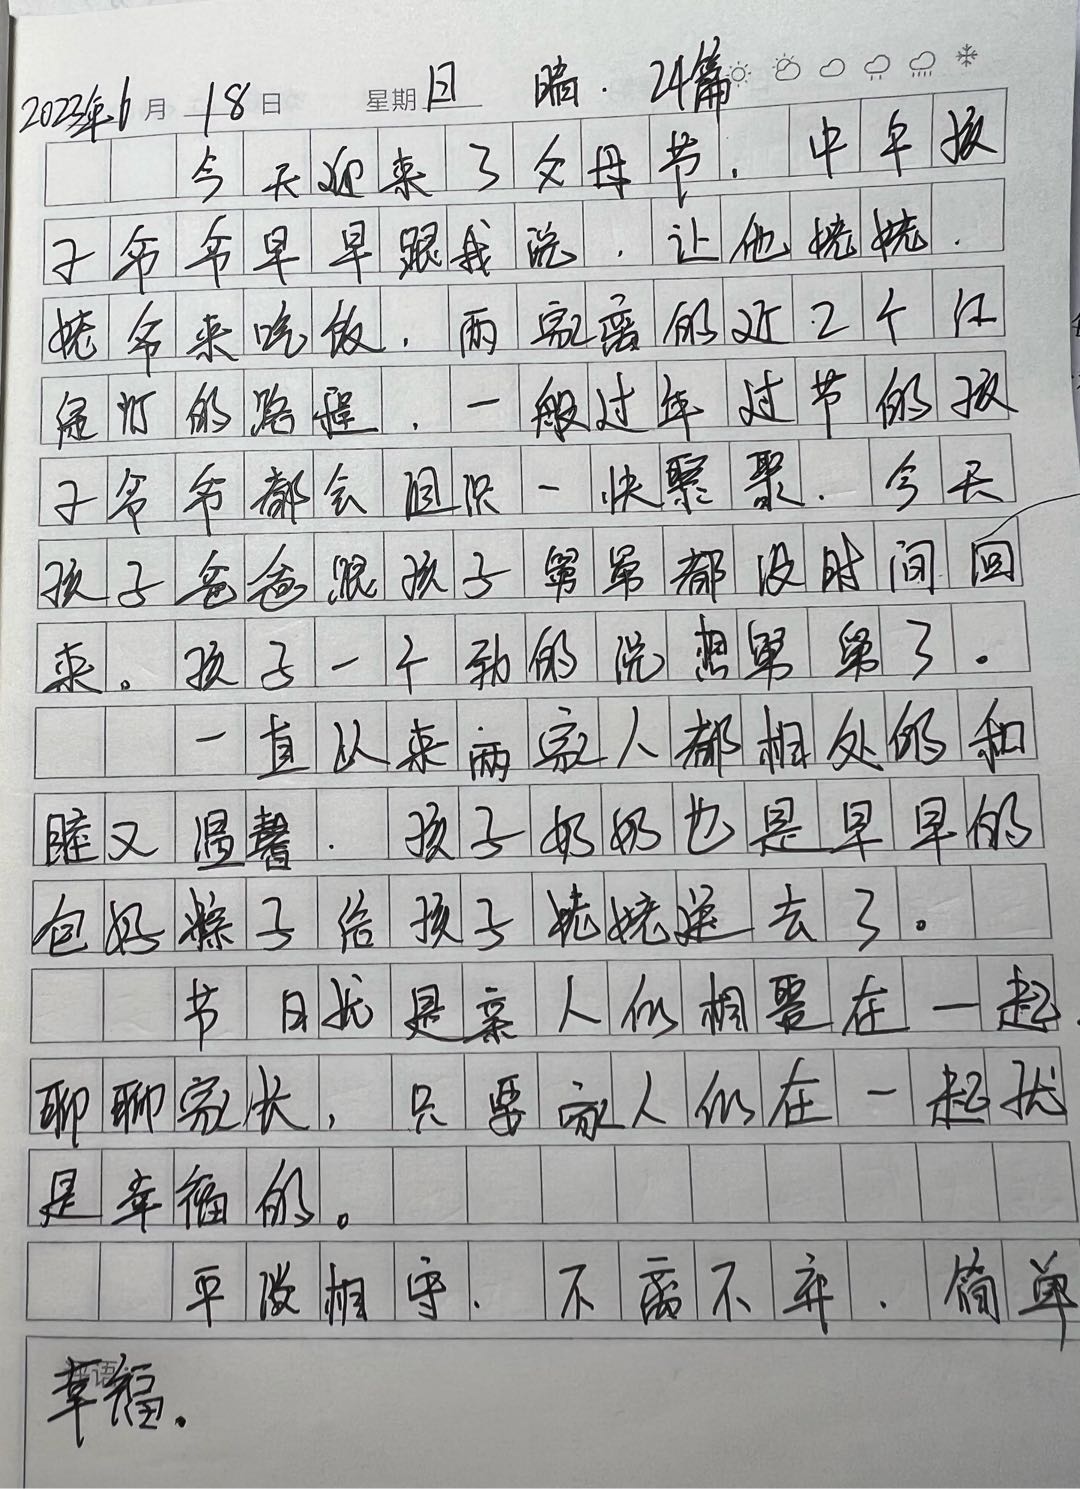 2023年6月18日 星期日 晴. 24篇
今天迎来了父母节.中午孩
子爷爷早早跟我说.让他姥姥.
姥爷来吃饭.两家离的近2个红
绿灯的路程.一般过年过节的孩
子爷爷都会组织一快聚聚.今天
孩子爸爸跟孩子舅舅都没时间回
来。孩子一个劲的说想舅舅了.
一直以来两家人都相处的和
睦又温馨.孩子奶奶也是早早的
包好粽子给孩子姥姥送去了。
节日就是亲人们相聚在一起.
聊聊家长,只要家人们在一起就
是幸福的。
平淡相守.不离不弃.简单
评语:
幸福.